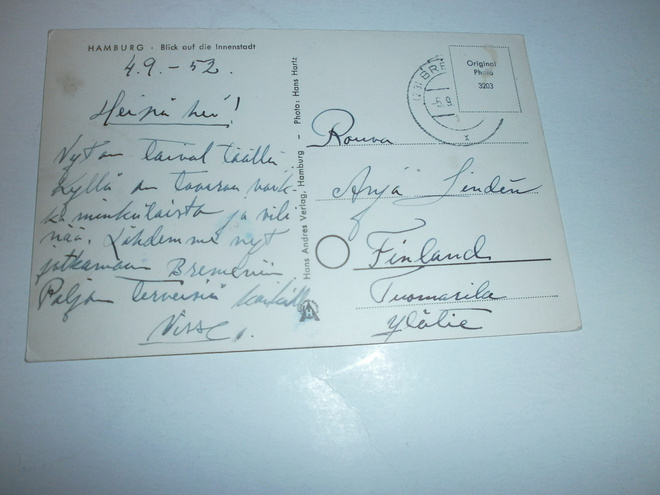 HAMBURG · Blick auf die Innenstadt
4.9.-52.
Heipä hei!
Nyt on taival täällä.
Kyllä on tavaraa vaik-
ka minkälaista ja vili
nää. Lähdemme nyt
jatkamaan Bremeniin
Paljon terveisiä kaikille
Hans Andres Verlag, Hamburg – Photo: Hans Hartz
BRE
Original
Photo
3203
Rouva
Arja Lindén
Finland
Tuomarila
Ylätie